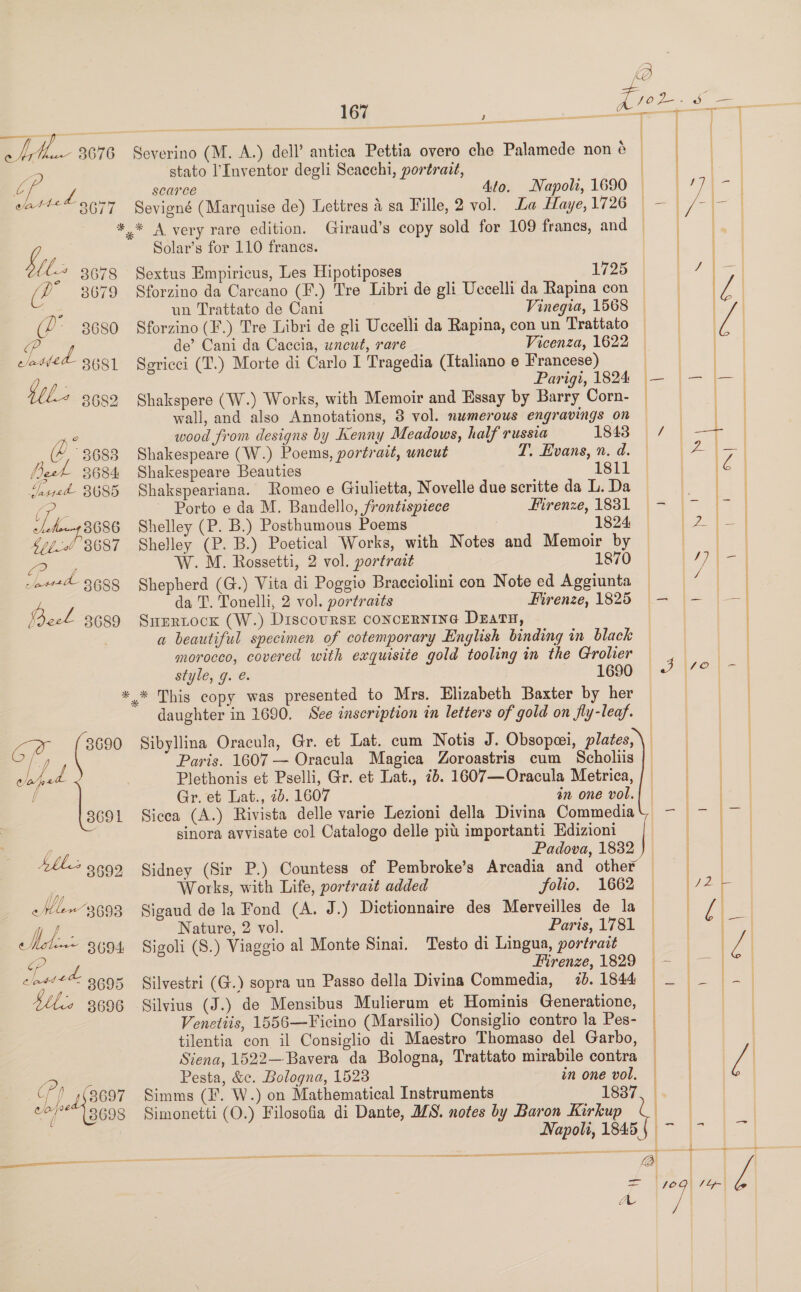 167
£102. 8 —
3676 Severino (M. A.) dell’ antica Pettia overo che Palamede non è
stato l’Inventor degli Scacchi, portrait,
scarce 4to. Napoli, 1690 17 -
3677 Sevigné (Marquise de) Lettres à sa Fille, 2 vol. La Haye, 1726
*** A very rare edition. Giraud’s copy sold for 109 francs, and
Solar’s for 110 francs.
3678 Sextus Empiricus, Les Hipotiposes 1725
3679 Sforzino da Carcano (F.) Tre Libri de gli Uccelli da Rapina con
un Trattato de Cani Vinegia, 1568
3680 Sforzino (F.) Tre Libri de gli Uccelli da Rapina, con un Trattato
de’ Cani da Caccia, uncut, rare Vicenza, 1622
3681 Sgricci (T.) Morte di Carlo I Tragedia (Italiano e Francese)
Parigi, 1824 — — —
3682 Shakspere (W.) Works, with Memoir and Essay by Barry Corn-
wall, and also Annotations, 3 vol. numerous engravings on
wood from designs by Kenny Meadows, half russia 1843 1 —
3683 Shakespeare (W.) Poems, portrait, uncut T. Evans, n. d. 2 —
3684 Shakespeare Beauties 1811 6
3685 Shakspeariana. Romeo e Giulietta, Novelle due scritte da L. Da
Porto e da M. Bandello, frontispiece Firenze, 1831 - - -
3686 Shelley (P. B.) Posthumous Poems 1824 2 —
3687 Shelley (P. B.) Poetical Works, with Notes and Memoir by
W. M. Rossetti, 2 vol. portrait 1870 17 -
3688 Shepherd (G.) Vita di Poggio Bracciolini con Note ed Aggiunta
da T. Tonelli, 2 vol. portraits Firenze, 1825 — — —
Beet 3689 SHERLOCK (W.) DISCOURSE CONCERNING DEATH,
a beautiful specimen of cotemporary English binding in black
morocco, covered with exquisite gold tooling in the Grolier
style, g. e. 1690 3 10 -
*** This copy was presented to Mrs. Elizabeth Baxter by her
daughter in 1690. See inscription in letters of gold on fly-leaf.
3690 Sibyllina Oracula, Gr. et Lat. cum Notis J. Obsopœi, plates,
Paris. 1607 — Oracula Magica Zoroastris cum Scholiis
Plethonis et Pselli, Gr. et Lat., ib. 1607—Oracula Metrica,
Gr. et Lat., ib. 1607 in one vol.
3691 Sicca (A.) Rivista delle varie Lezioni della Divina Commedia - - -
sinora avvisate col Catalogo delle più importanti Edizioni
Padova, 1832
3692 Sidney (Sir P.) Countess of Pembroke’s Arcadia and other
Works, with Life, portrait added folio. 1662 12 -
3693 Sigaud de la Fond (A. J.) Dictionnaire des Merveilles de la
Nature, 2 vol. Paris, 1781
3694 Sigoli (S.) Viaggio al Monte Sinai. Testo di Lingua, portrait
Firenze, 1829
3695 Silvestri (G.) sopra un Passo della Divina Commedia, ib. 1844 - - -
3696 Silvius (J.) de Mensibus Mulierum et Hominis Generatione,
Venetiis, 1556—Ficino (Marsilio) Consiglio contro la Pes-
tilentia con il Consiglio di Maestro Thomaso del Garbo,
Siena, 1522—Bavera da Bologna, Trattato mirabile contra
Pesta, &c. Bologna, 1523 in one vol.
3697 Simms (F. W.) on Mathematical Instruments 1837
3698 Simonetti (O.) Filosofia di Dante, MS. notes by Baron Kirkup
Napoli, 1845 - - -
109 14 6